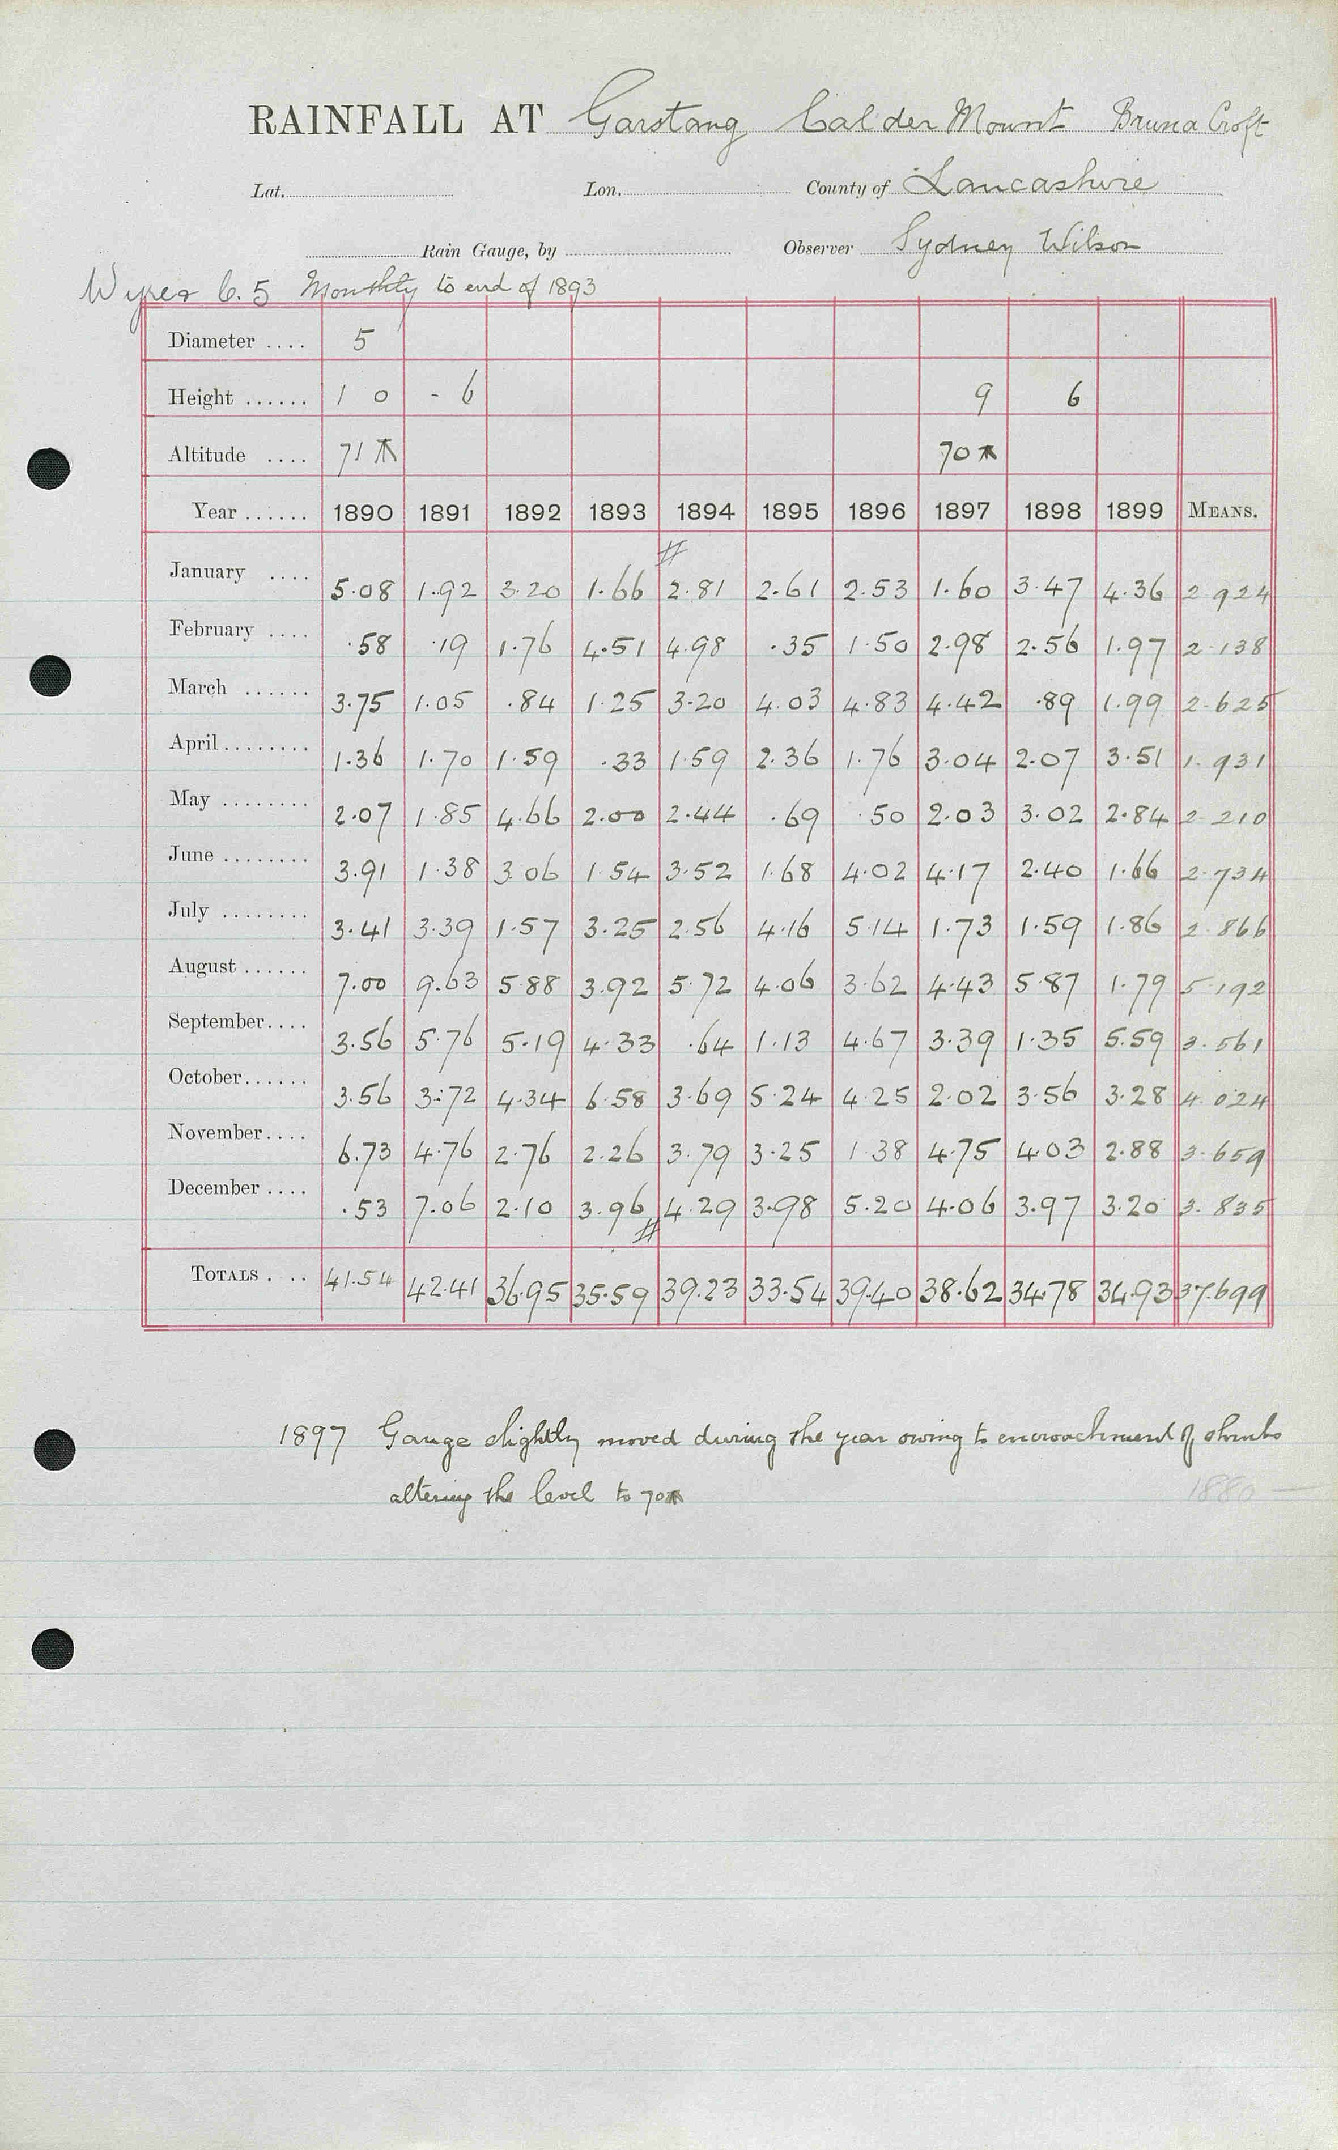 RAINFALL AT Garstang Calder Mount Bruna Croft
Lat. Lon. County of Lancashire
Rain Gauge, by Observer Sydney Wilson
Wyres C. 5 Monthly to end of 1893
Diameter .... 5
Height ...... 1 0 - 6 9 6
Altitude .... 71 70
Year ...... 1890 1891 1892 1893 1894 1895 1896 1897 1898 1899 MEANS.
#
January .... 5.08 1.92 3.20 1.66 2.81 2.61 2.53 1.60 3.47 4.36 2.924
February .... .58 .19 1.76 4.51 4.98 .35 1.50 2.98 2.56 1.97 2.138
March ...... 3.75 1.05 .84 1.25 3.20 4.03 4.83 4.42 .89 1.99 2.625
April ........ 1.36 1.70 1.59 .33 1.59 2.36 1.76 3.04 2.07 3.51 1.931
May ........ 2.07 1.85 4.66 2.00 2.44 .69 .50 2.03 3.02 2.84 2.210
June ........ 3.91 1.38 3.06 1.54 3.52 1.68 4.02 4.17 2.40 1.66 2.734
July ........ 3.41 3.39 1.57 3.25 2.56 4.16 5.14 1.73 1.59 1.86 2.866
August ...... 7.00 9.63 5.88 3.92 5.72 4.06 3.62 4.43 5.87 1.79 5.192
September.... 3.56 5.76 5.19 4.33 .64 1.13 4.67 3.39 1.35 5.59 3.561
October...... 3.56 3.72 4.34 6.58 3.69 5.24 4.25 2.02 3.56 3.28 4.024
November.... 6.73 4.76 2.76 2.26 3.79 3.25 1.38 4.75 4.03 2.88 3.659
December .... .53 7.06 2.10 3.96 4.29 3.98 5.20 4.06 3.97 3.20 3.835
#
TOTALS . .. 41.54 42.41 36.95 35.59 39.23 33.54 39.40 38.62 34.78 34.93 37.699
1897 Gauge slightly moved during the year owing to encroachment of shrubs
altering the level to 70
1880 —